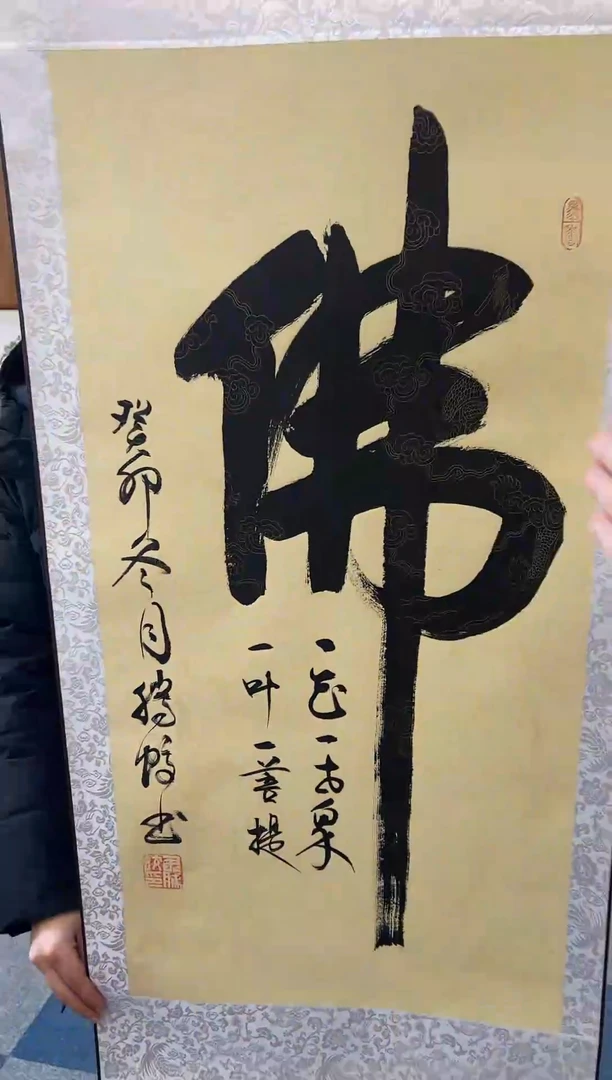 佛
一花一世界
一叶一菩提
癸卯冬月书